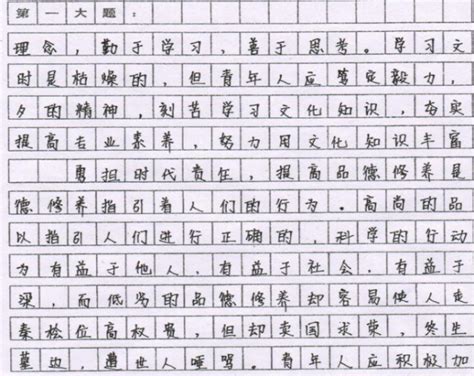 第一大题：
理念，勤于学习，善于思考。学习文
时是枯燥的，但青年人应笃定毅力，
夕的精神，刻苦学习文化知识，夯实
提高专业素养，努力用文化知识丰富
勇担时代责任，提高品德修养是
德修养指引着人们的行为。高尚的品
以指引人们进行正确的，科学的行动
为有益于他人，有益于社会，有益于
梁，而低劣的品德修养却容易使人走
秦桧位高权贵，但却卖国求荣，终生
墓边，遭世人唾骂。青年人应积极加